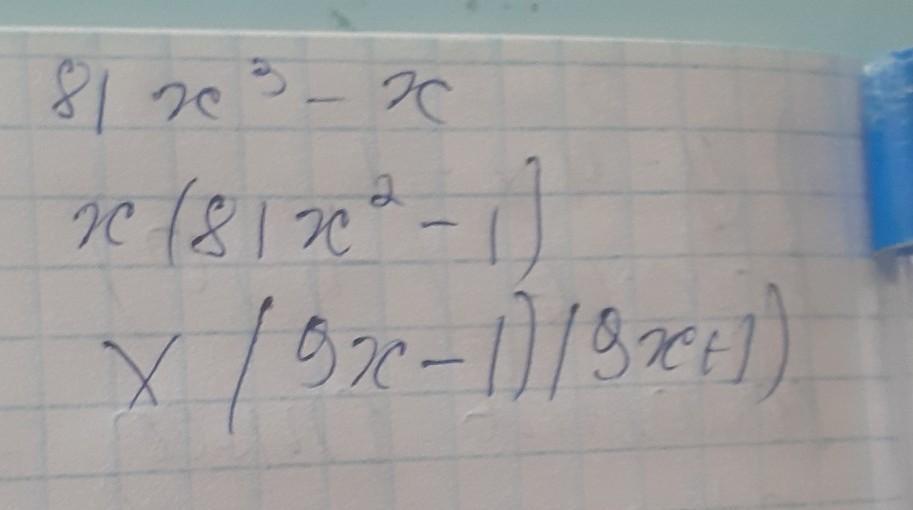 81x³ - x
x(81x² - 1)
x(9x - 1)(9x + 1)